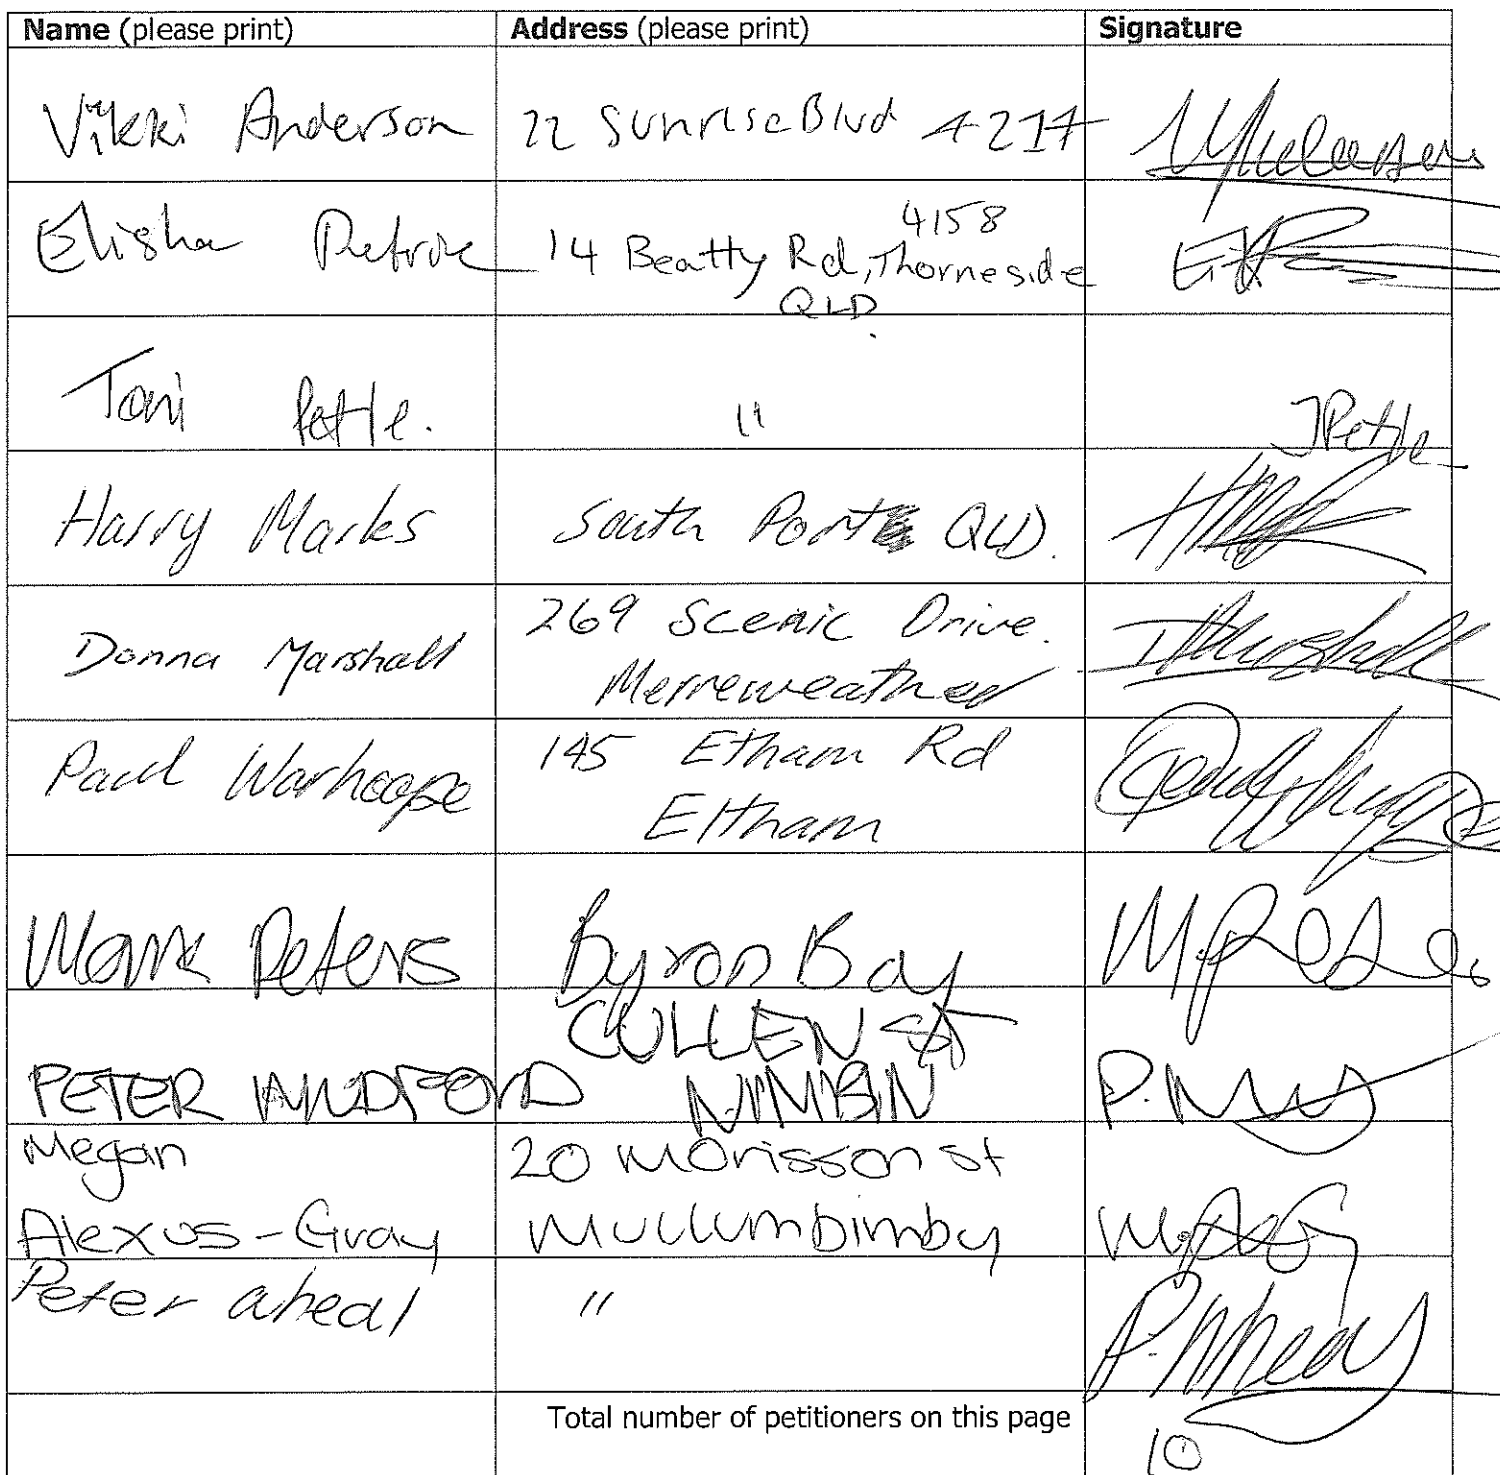 Name (please print) Address (please print) Signature
Vikki Anderson 22 Sunrise Blvd 4217
Elisha Petrie 14 Beatty Rd, Thorneside 4158
QLD.
Toni Pettle. " TPettle
Harry Marks South Port QLD.
Donna Marshall 269 Scenic Drive. DMarshall
Merreweather
Paul Warhoope 145 Eltham Rd
Eltham
Mark Peters Byron Bay M.Peters
CULLEN ST
PETER NIMBIN
Megan 20 Morisson st
Alexus-Gray Mullumbimby
Peter aheal "
Total number of petitioners on this page
10